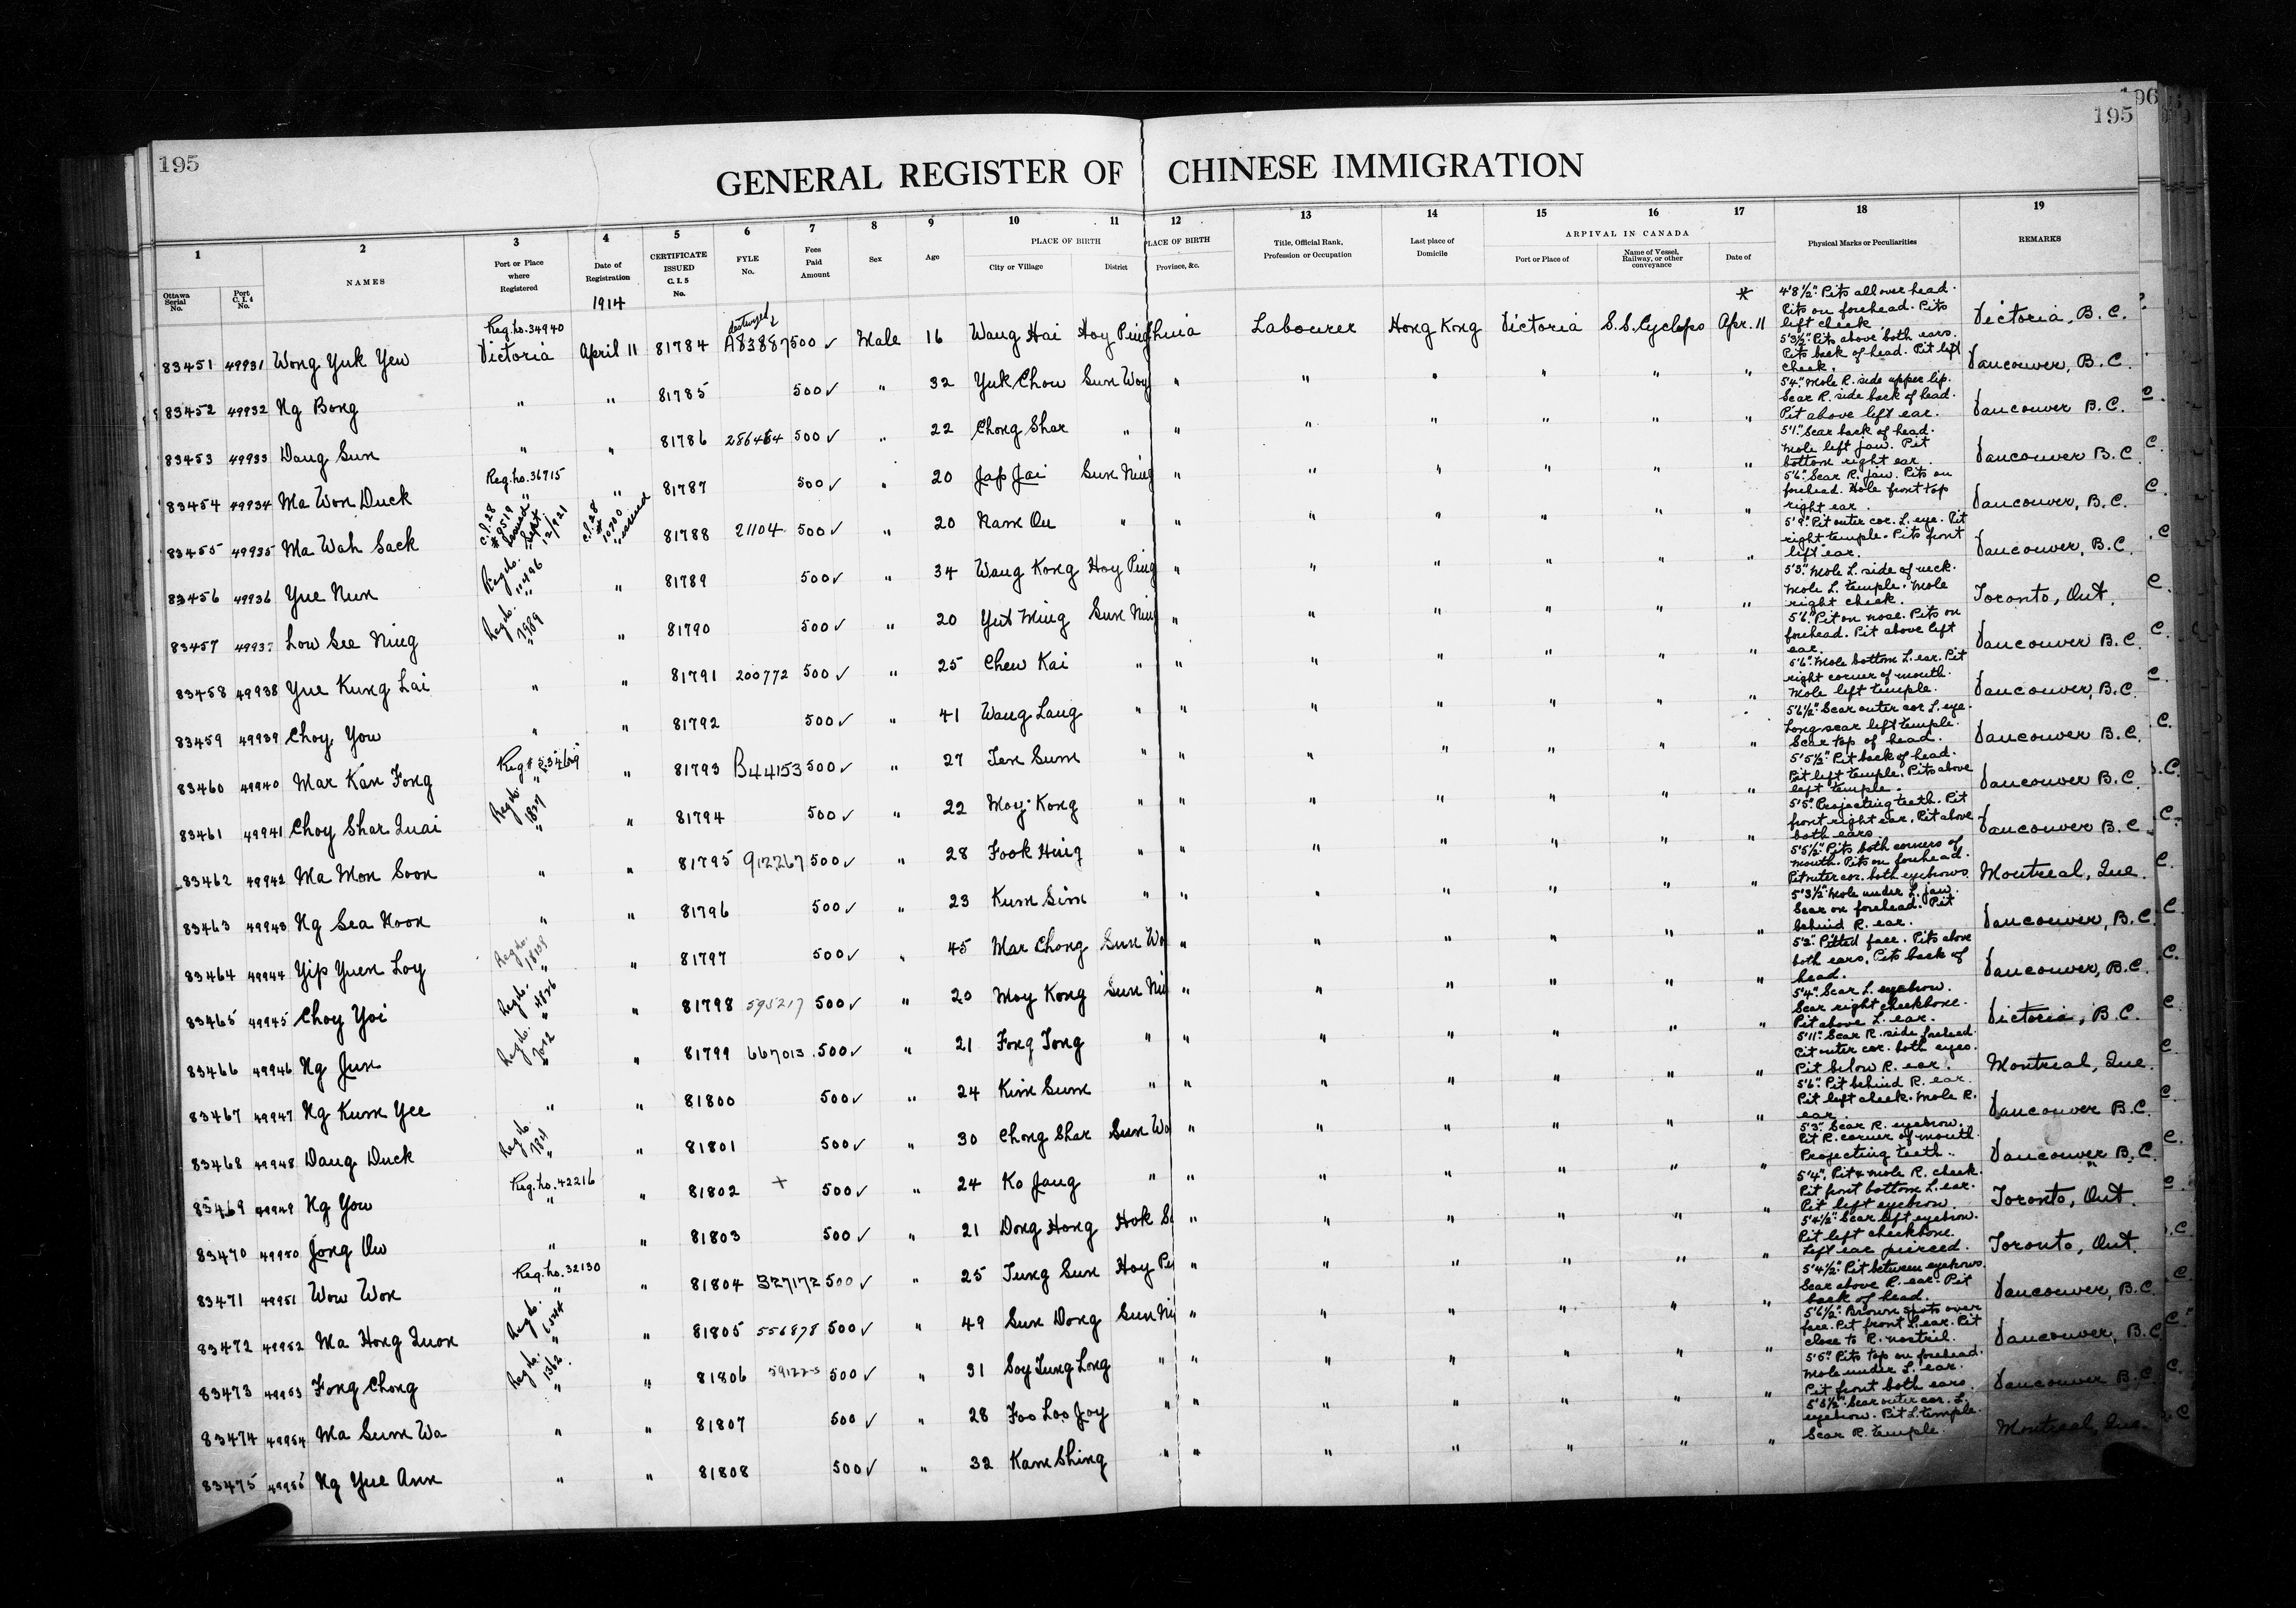 196
195
195
GENERAL REGISTER OF CHINESE IMMIGRATION
1 2 3 4 5 6 7 8 9 10 11 12 13 14 15 16 17 18 19
Ottawa Serial No.
Port C.I.4 No.
NAMES
Port or Place where Registered
Date of Registration
CERTIFICATE ISSUED C. I. 5 No.
FYLE No.
Fees Paid Amount
Sex
Age
PLACE OF BIRTH
City or Village
District
PLACE OF BIRTH
Province, &c.
Title, Official Rank, Profession or Occupation
Last place of Domicile
ARRIVAL IN CANADA
Port or Place of
Name of Vessel, Railway, or other conveyance
Date of
Physical Marks or Peculiarities
REMARKS
1914
83451 49931 Wong Yuk Yew Reg. No. 34940 Victoria April 11 81784 destroyed A83887 500 ✓ Male 16 Wang Hai Hoy Ping China Labourer Hong Kong Victoria S.S. Cyclops * Apr. 11 4'8½" Pits all over head. Pits on forehead. Pits left cheek. Victoria, B.C.
83452 49932 Ng Bong " " 81785 500 ✓ " 32 Yuk Chow Sun Woy " " " " " " 5'3½" Pits above both ears. Pits back of head. Pit left cheek. Vancouver, B.C.
83453 49933 Dang Sun " " 81786 286464 500 ✓ " 22 Chong Shar " " " " " " " 5'4" Mole R. side upper lip. Scar R. side back of head. Pit above left ear. Vancouver B.C.
83454 49934 Ma Won Duck Reg. No. 36715 " " 81787 500 ✓ " 20 Jap Jai Sun Ning " " " " " " 5'1" Scar back of head. Mole left jaw. Pit bottom right ear. Vancouver B.C.
83455 49935 Ma Wah Sack C.I. 28 # 9519 issued Sept. 12/921 C.I. 28 # 10700 issued " 81788 21104 500 ✓ " 20 Nam On " " " " " " " 5'6" Scar R. jaw. Pits on forehead. Mole front top right ear. Vancouver, B.C.
83456 49936 Yue Nun " " 81789 500 ✓ " 34 Wang Kong Hoy Ping " " " " " " 5'9" Pit outer cor. L. eye. Pit right temple. Pits front left ear. Vancouver, B.C.
83457 49937 Low See Ning Reg. No. 7989 " " 81790 500 ✓ " 20 Yut Ming Sun Ning " " " " " " 5'3" Mole L. side of neck. Mole L. temple. Mole right cheek. Toronto, Ont.
83458 49938 Yue Kung Lai " " 81791 200772 500 ✓ " 25 Chew Kai " " " " " " " 5'6" Pit on nose. Pits on forehead. Pit above left ear. Vancouver B.C.
83459 49939 Choy You " " 81792 500 ✓ " 41 Wang Lang " " " " " " " 5'6" Mole bottom L. ear. Pit right corner of mouth. Mole left temple. Vancouver, B.C.
83460 49940 Mar Kan Fong " " 81793 B44153 500 ✓ " 27 Ten Sum " " " " " " " 5'6½" Scar outer cor L. eye. Long scar left temple. Scar top of head. Vancouver B.C.
83461 49941 Choy Shar Quai Reg. No. 1827 " " 81794 500 ✓ " 22 Moy Kong " " " " " " " 5'5½" Pit back of head. Pit left temple. Pits above left temple. Vancouver B.C.
83462 49942 Ma Mon Soon " " 81795 912267 500 ✓ " 28 Fook Hing " " " " " " " 5'5" Projecting teeth. Pit front right ear. Pit above both ears. Vancouver B.C.
83463 49943 Ng Sea Noon " " 81796 500 ✓ " 23 Kum Sim " " " " " " " 5'5½" Pits both corners of mouth. Pits on forehead. Pit outer cor. both eyebrows. Montreal, Que.
83464 49944 Yip Yuen Loy Reg. No. " " 81797 500 ✓ " 45 Mar Chong Sun Wo " " " " " " 5'3½" Mole under L. jaw. Scar on forehead. Pit behind R. ear. Vancouver, B.C.
83465 49945 Choy Yoi Reg. No. 4826 " " 81798 595217 500 ✓ " 20 Moy Kong Sun Ni " " " " " " 5'2" Pitted face. Pits above both ears. Pits back of head. Vancouver, B.C.
83466 49946 Ng Jun Reg. No. 7092 " " 81799 667013 500 ✓ " 21 Fong Tong " " " " " " " 5'4" Scar L. eyebrow. Scar right cheekbone. Pit above L. ear. Victoria, B.C.
83467 49947 Ng Kum Yee " " 81800 500 ✓ " 24 Kim Sum " " " " " " " 5'11" Scar R. side forehead. Pit outer cor. both eyes. Pit below R. ear. Montreal, Que.
83468 49948 Dang Duck Reg. No. 7841 " " 81801 500 ✓ " 30 Chong Shar Sun Wo " " " " " " 5'6" Pit behind R. ear. Pit left cheek. Mole R. ear. Vancouver B.C.
83469 49949 Ng You Reg. No. 42216 " " 81802 + 500 ✓ " 24 Ko Jang " " " " " " " 5'3" Scar R. eyebrow. Pit R. corner of mouth. Projecting teeth. Vancouver B.C.
83470 49950 Jong Ow " " 81803 500 ✓ " 21 Dong Hong Hok S " " " " " " 5'4" Pit & mole R. cheek. Pit front bottom L. ear. Pit left eyebrow. Toronto, Ont.
83471 49951 Wow Won Reg. No. 32130 " " 81804 327172 500 ✓ " 25 Tung Sun Hoy Pi " " " " " " 5'4½" Scar left eyebrow. Pit left cheekbone. Left ear pierced. Toronto, Ont.
83472 49952 Ma Hong Quon Reg. No. " " 81805 556878 500 ✓ " 49 Sun Dong Sun Ni " " " " " " 5'4½" Pit between eyebrows. Scar above R. ear. Pit back of head. Vancouver, B.C.
83473 49953 Fong Chong Reg. No. 1362 " " 81806 591225 500 ✓ " 31 Soy Tung Long " " " " " " " 5'6½" Brown spots over face. Pit front L. ear. Pit close to R. nostril. Vancouver, B.C.
83474 49954 Ma Sum Wa " " 81807 500 ✓ " 28 Foo Loo Joy " " " " " " " 5'5" Pits top on forehead. Mole under L. ear. Pit front both ears. Vancouver B.C.
83475 49955 Ng Yue Ann " " 81808 500 ✓ " 32 Kam Shing " " " " " " " 5'5½" Scar outer cor. L. eyebrow. Pit L. temple. Scar R. temple. Montreal, Que.